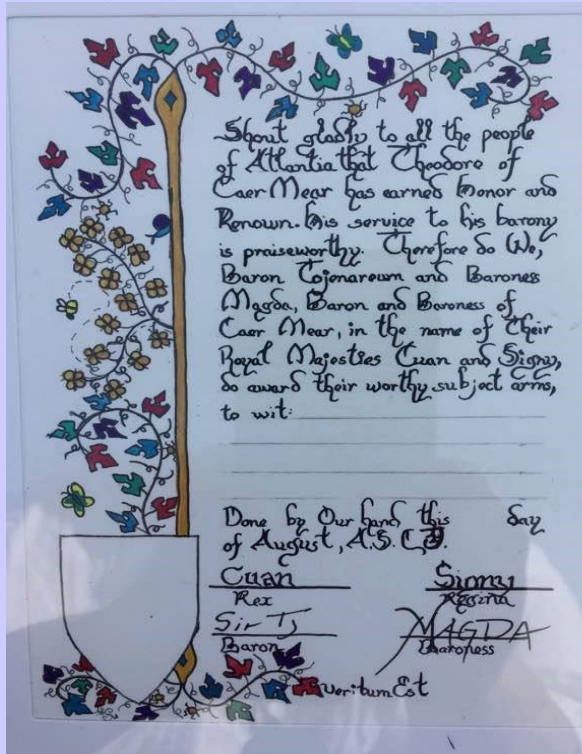 Shout gladly to all the people
of Atlantia that Theodore of
Caer Mear has earned honor and
Renown. his service to his barony
is praiseworthy. Therefore do We,
Baron Tojenareum and Baroness
Magda, Baron and Baroness of
Caer Mear, in the name of Their
Royal Majesties Cuan and Signy,
do award their worthy subject arms,
to wit:
Done by Our hand this day
of August, A.S.
Cuan Signy
Rex Regina
Sir Tj MAGDA
Baron Baroness
VeritumEst